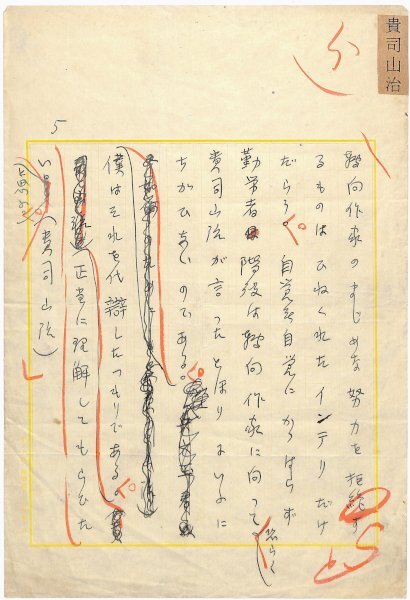 貴司山治
5
転向作家のまじめな努力を拒絶す
るものはひねくれたインテリだけ
だらう。自覚無自覚にかゝはらず
勤労者階級は転向作家に向つて恐らく
貴司山治が言つたとほり
ちがひないのである。
僕はそれを代辯したつもりである。
正당に理解してもらひた
いと思ふ(貴司山治)